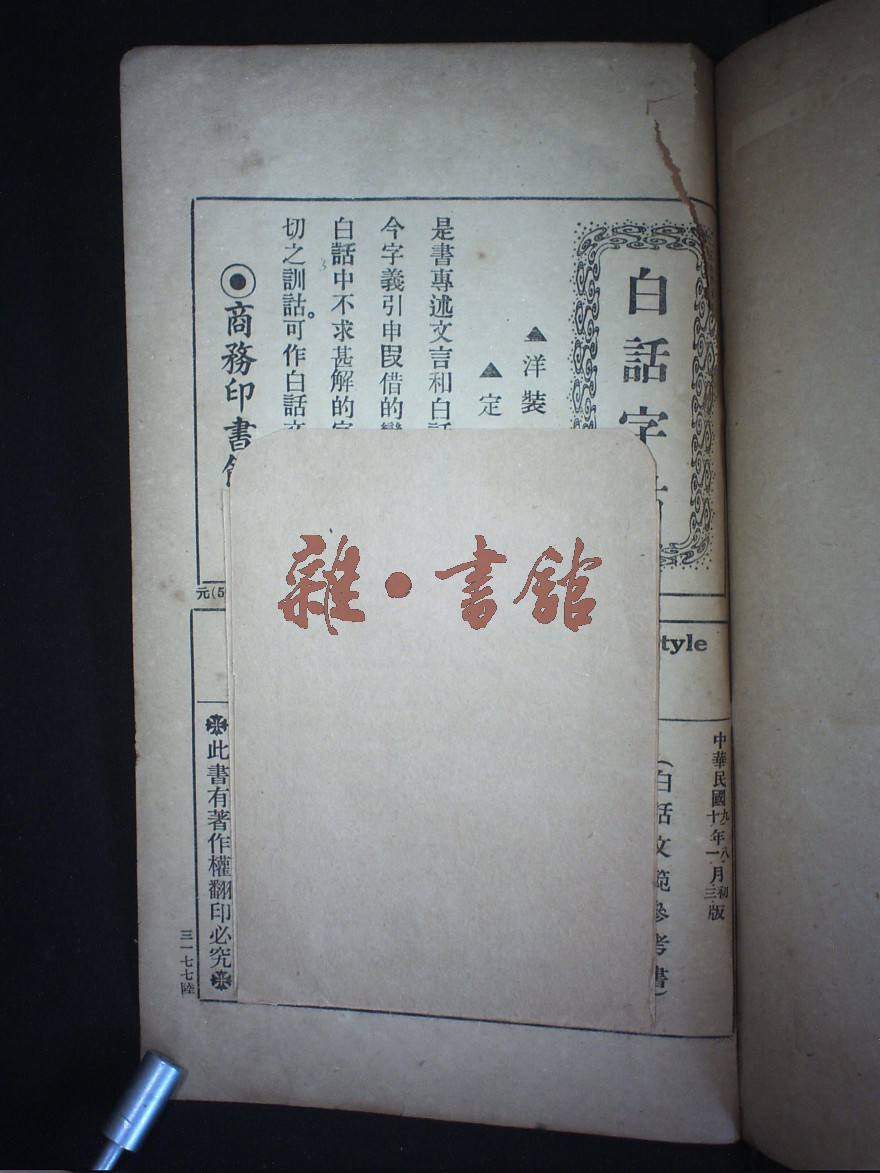 白話字
▲洋裝
▲定
是書專述文言和白話
今字義引申叚借的變
白話中不求甚解的字
切之訓詁。可作白話文
商務印書館
元(5
tyle
中華民國九年八月初版
十一三
(白話文範參考書)
❉此書有著作權翻印必究❉
三一七七陸
雜•書館